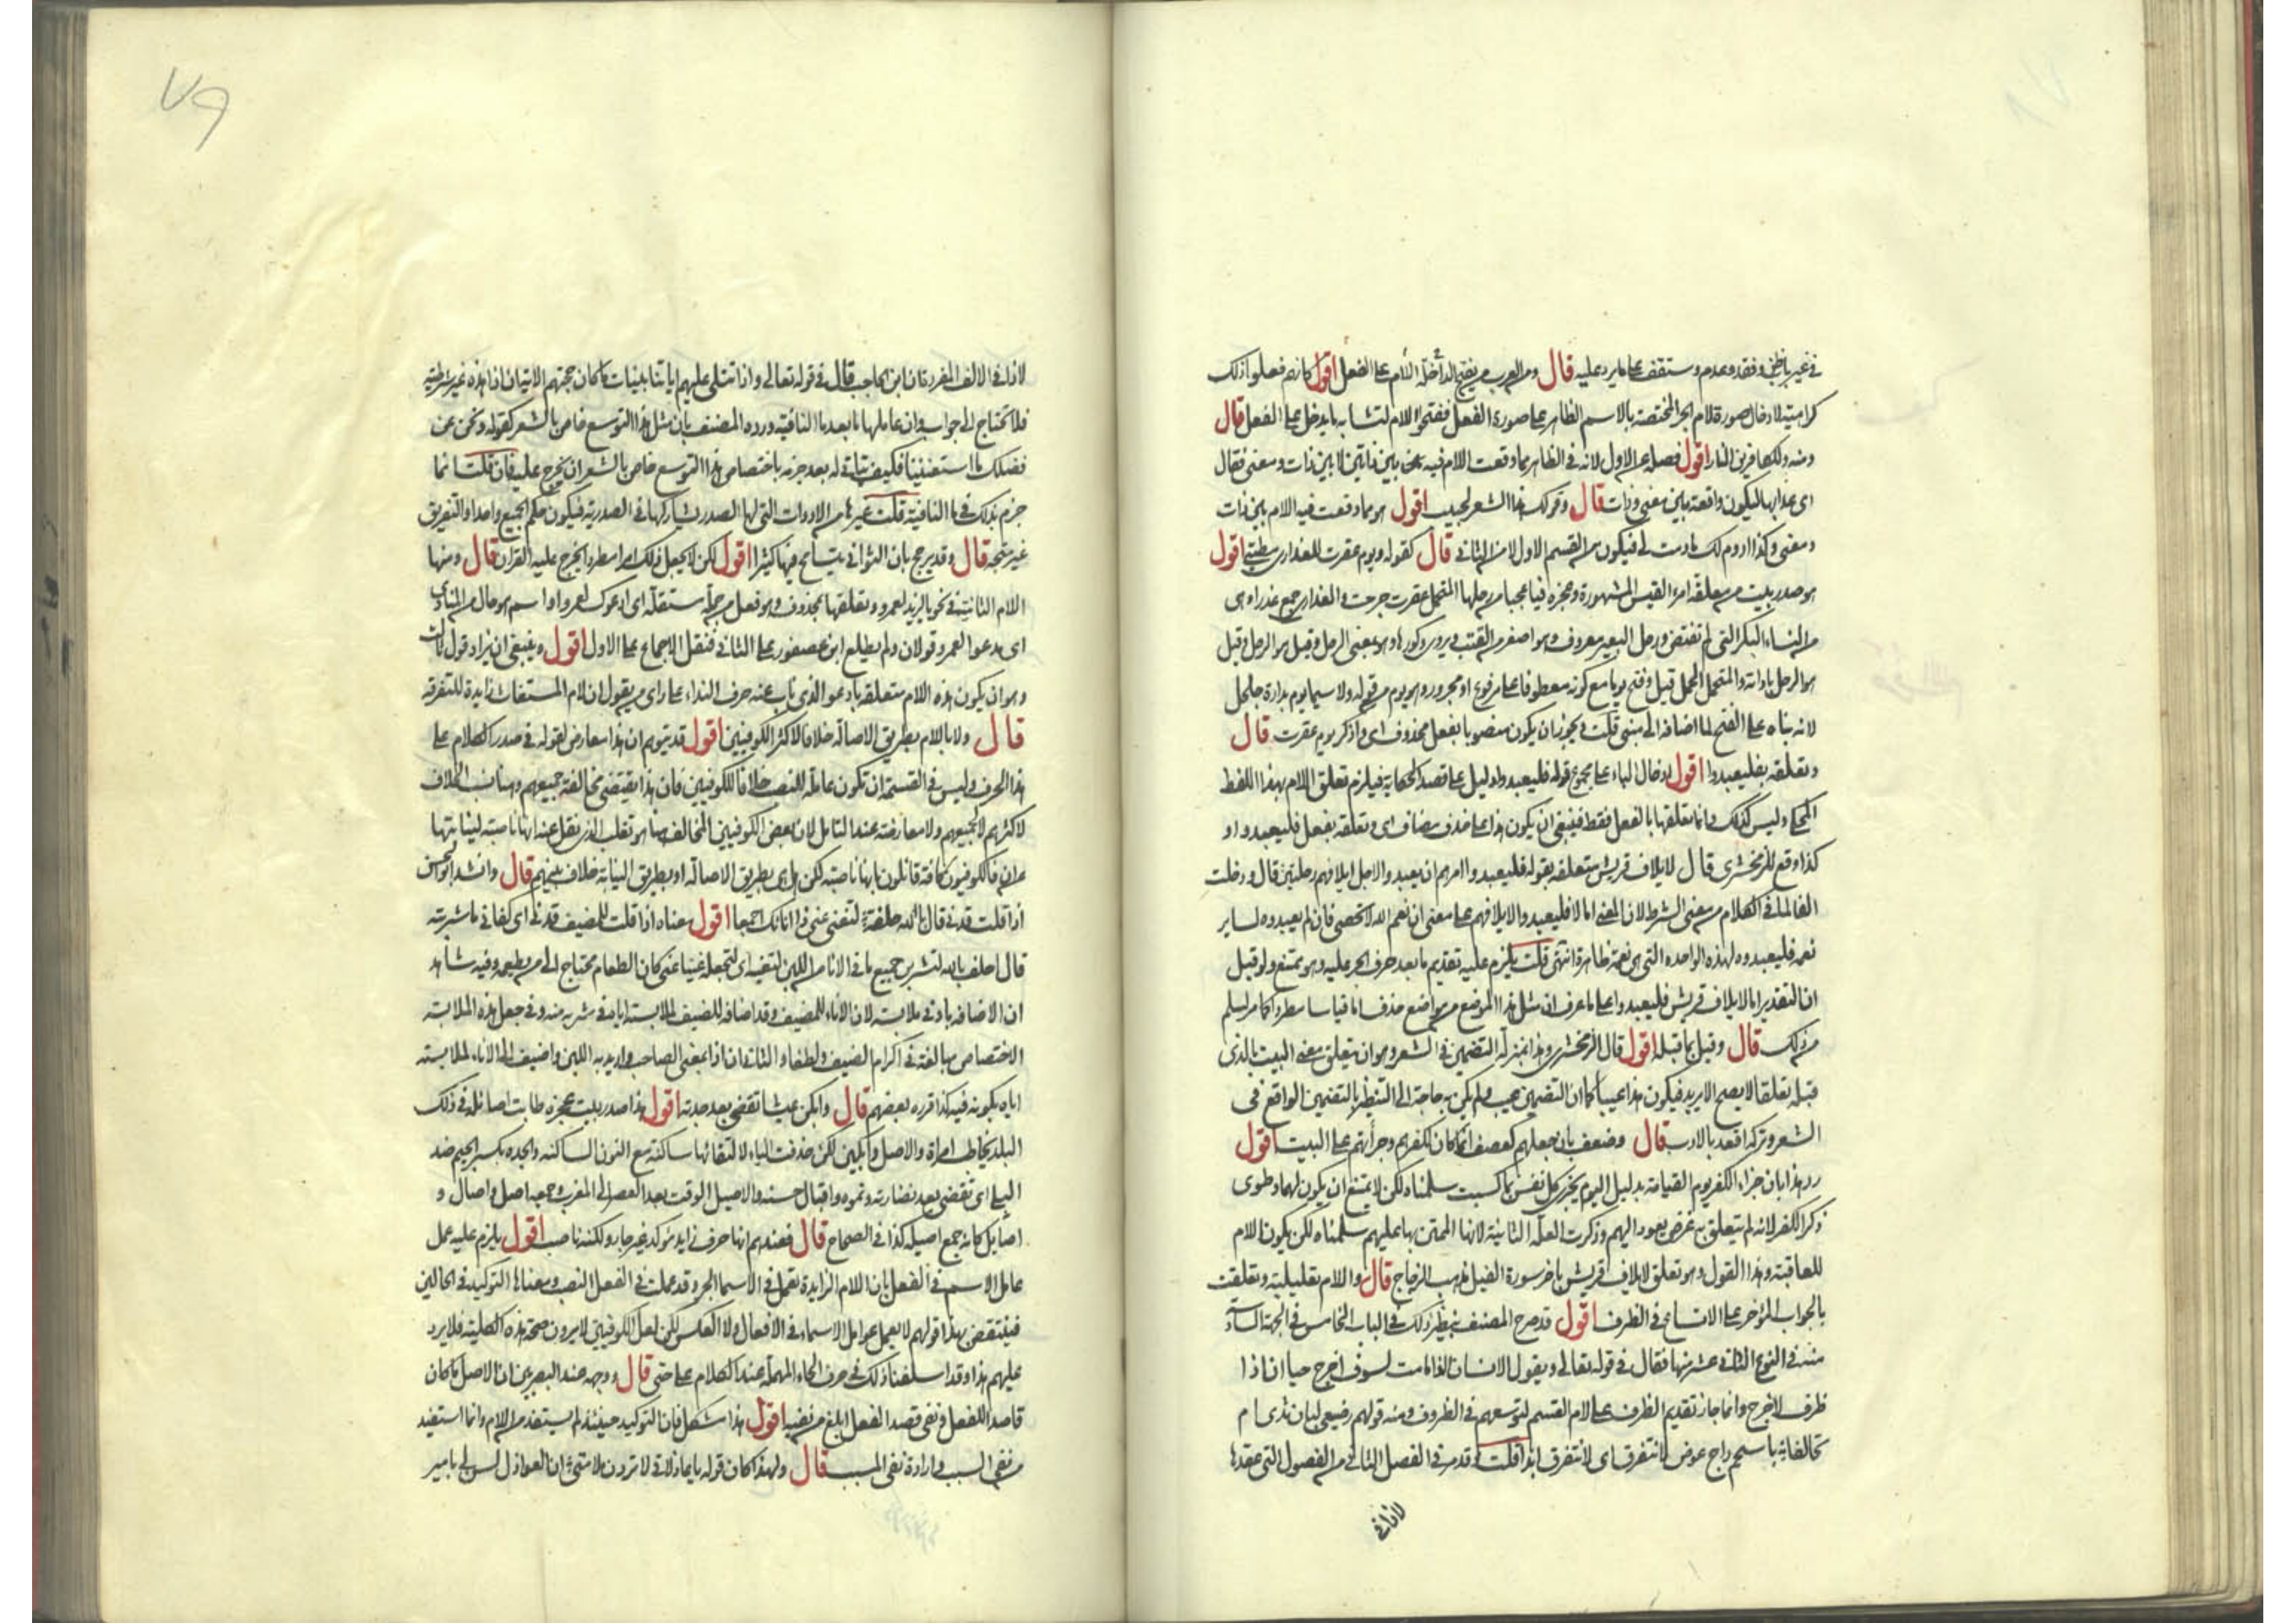 في غير باظني وفقد وعدم وستقف على ما يرد عليه قال ومن العرب من يفتح الداخلة اللام على الفعل اقول كانهم فعلوا ذلك
كراهية لادخال صورة لام الجر المختصة بالاسم الظاهر على صورة الفعل ففتحوا اللام لتشابه ما يدخل على الفعل قال
ومنه وللكافرين النار اقول فصله عن الاول لانه في الظاهر مما وقعت اللام فيه بين ذاتين لا بين ذات ومعنى فقال
اي عذابها ليكون واقعة بين معنى وذات قال وقولك هذا الشعر لحبيب اقول هو مما وقعت فيه اللام بين ذات
ومعنى وكذا ادوم لك ما دمت لي فيكون من القسم الاول لا من الثاني قال كقوله ويوم عقرت للعذارى مطيتي اقول
هو صدر بيت من معلقة امرء القيس المشهورة وعجزه فيا عجبا من رحلها المتحمل عقرت جرحت والعذارى جمع عذراء وهي
من النساء البكر التي لم تفتض ورحل البعير معروف وهو اصغر من القتب ويروى كورها وهو بمعنى الرحل وقيل هو الرحل وقيل
هو الرحل باداته والمتحمل المحمل قيل وفتح يوما مع كونه معطوفا على مرفوع او مجرور وهو يوم من قوله ولا سيما يوم بدارة جلجل
لانه بناه على الفتح لما اضافه الى مبني قلت ويجوز ان يكون منصوبا بفعل محذوف اي واذكر يوم عقرت قال
وتعلقه بفليعبدوا اقول ادخال الباء على مجموع قوله فليعبدوا دليل على قصد الحكاية فيلزم تعلق اللام بهذا اللفظ
المحكي وليس كذلك وانما تعلقها بالفعل فقط فينبغي ان يكون هذا على حذف مضاف اي وتعلقه بفعل فليعبدوا و
كذا وقع للزمخشري قال لايلاف قريش متعلقه بقوله فليعبدوا امرهم ان يعبدوا لاجل ايلافهم رحلتين قال ودخلت
الفا لما في الكلام من معنى الشرط لان المعنى اما لا فليعبدوا لايلافهم على معنى ان نعم الله لا تحصى فان لم يعبدوه لساير
نعمه فليعبدوه لهذه الواحده التي هي نعمة ظاهرة انتهى قلت يلزم عليه تقديم ما بعد حرف الجر عليه وهو ممتنع ولو قيل
ان التقدير اما لايلاف قريش فليعبدوا على ما عرف ان مثل هذا الموضع من مواضع حذف اما قياسا مطردا كما مر لسلم
من ذلك قال وقيل بما قبله اقول قال الزمخشري وهذا بمنزلة التضمين في الشعر وهو ان يتعلق معنى البيت بالذي
قبله تعلقا لا يصح الا به فيكون هذا عيبا كما ان التضمين عيب ولم يكن به حاجة الى التنظير بالتضمين الواقع في
الشعر وتركه اقعد بالادب قال وضعف بان جعلهم كعصف انما كان لكفرهم وجراتهم على البيت اقول
رد هذا بان جزاء الكفر يوم القيامة بدليل اليوم تجزى كل نفس بما كسبت سلمناه لكن لا يمتنع ان يكون لهما وطوى
ذكر الكفر لانه لم يتعلق به غرض يعود اليهم وذكرت العلة الثانية لانها الممتن بها عليهم سلمناه لكن يكون اللام
للعاقبة وهذا القول وهو تعلق لايلاف قريش باخر سورة الفيل مذهب الزجاج قال واللام تعليلية وتعلقت
بالجواب المؤخر على الاتساع في الظرف اقول قد صرح المصنف بنظير ذلك في الباب الخامس في الجهة السادسة
منه في النوع الثاني عشر منها فقال في قوله تعالى ويقول الانسان ائذا ما مت لسوف اخرج حيا ان اذا
ظرف لاخرج وانما جاز تقديم الظرف على لام القسم لتوسعهم في الظروف ومنه قولهم رضيعي لبان ثدي ام
تحالفا باسحم داج عوض لا نتفرق اي لا نتفرق ابدا قلت وقد مر في الفصل الثاني من الفصول التي عقدها
لاذا في
٧٩
لاذا في الالف المفردة ان ابن الحاجب قال في قوله تعالى واذا تتلى عليهم اياتنا بينات ما كان حجتهم الاية ان اذا هذه غير شرطية
فلا تحتاج الى جواب وان عاملها ما بعد ما النافية ورده المصنف بان مثل هذا التوسع خاص بالشعر كقوله ونحن عن
فضلك ما استغنينا فكيف يتاتى له بعد جزمه باختصاص هذا التوسع خاص بالشعر ان يخرج عليه فان قلت انما
جزم بذلك في ما النافية قلت غيرها من الادوات التي لها الصدر يشاركها في الصدرية فيكون حكم الجميع واحدا والتفريق
غير متجه قال وقد يرجح بان الثواني يتسامح فيها كثيرا اقول لكن لا يجعل ذلك امرا مطردا يخرج عليه القران قال ومنها
اللام الثانية في نحو يا لزيد لعمرو وتعلقها بمحذوف وهو فعل من جملة مستقلة اي ادعوك لعمرو او اسم هو حال من المنادى
اي مدعوا لعمرو قولان ولم يطلع ابن عصفور على الثاني فنقل الاجماع على الاول اقول وينبغي ان يزاد قول ثالث
وهو ان يكون هذه اللام متعلقة بادعو الذي ناب عنه حرف النداء على راي من يقول ان لام المستغاث زايدة للتفرقة
قال ولا باللام بطريق الاصالة خلافا لاكثر الكوفيين اقول قد يتوهم ان هذا معارض لقوله في صدر الكلام على
هذا الحرف وليس في القسمة ان تكون عاملة للنصب خلافا للكوفيين فان هذا يقتضي مخالفة جميعهم وهنا نسب الخلاف
لاكثرهم لا لجميعهم ولا معارضة عند التامل لان بعض الكوفيين المخالف هنا هو ثعلب الذي نقل عنه انها ناصبة لنيابتها
عن ان فالكوفيون كافة قائلون بانها ناصبة لكن هل هي بطريق الاصالة او بطريق النيابة خلاف بينهم قال وانشد ابو الحسن
اذا قلت قدني قال بالله حلفة لتغني عني ذا انائك اجمعا اقول معناه اذا قلت للمضيف قدني اي كفاني ما شربته
قال احلف بالله لتشربن جميع ما في الانا من اللبن لتغنيه اي لتجعله غنيا عني كان الطعام محتاج الى من يطعمه وفيه شاهد
ان الاضافة بادنى ملابسة لان الاناء للمضيف وقد اضافه للضيف لملابسته اياه في شربه منه وفي جعل هذه الملابسة
الاختصاص مبالغة في اكرام الضيف ولطفا والثاني ان ذا بمعنى الصاحب واريد به اللبن واضيف الى الاناء لملابسته
اياه بكونه فيه كذا قرره بعضهم قال وابكن عيشا تقضى بعد جدته اقول هذا صدر بيت عجزه طابت اصائله في ذلك
البلد يخاطب امراة والاصل وابكين لكن حذفت الياء لالتقائها ساكنة مع النون الساكنة والجده بكسر الجيم ضد
البلى اي تقضى بعد نضارته ونموه واقبال حسنه والاصيل الوقت بعد العصر الى المغرب وجمعه اصل واصال و
اصايل كانه جمع اصيلة كذا في الصحاح قال فعندهم انها حرف زايد مؤكد غير جار ولكنه ناصب اقول يلزم عليه عمل
عامل الاسم في الفعل بان اللام الزايدة تعمل في الاسما الجر وقد عملت في الفعل النصب ومعناها التوكيد في الحالين
فينتقض بهذا قولهم لا يعمل عوامل الاسماء في الافعال ولا العكس لكن لعل الكوفيين لا يرون صحة هذه الكلية فلا يرد
عليهم هذا وقد اسلفنا ذلك في حرف الحاء المهملة عند الكلام على حتى قال ووجهه عند البصريين ان الاصل ما كان
قاصدا للفعل ونفي قصد الفعل ابلغ من نفيه اقول هذا مشكل فان التوكيد حينئذ لم يستفد من اللام وانما استفيد
من نفي السبب وارادة نفي المسبب قال ولهذا كان قوله يا عاذلاتي لا تردن ملامتي ان العواذل لسن لي بامير